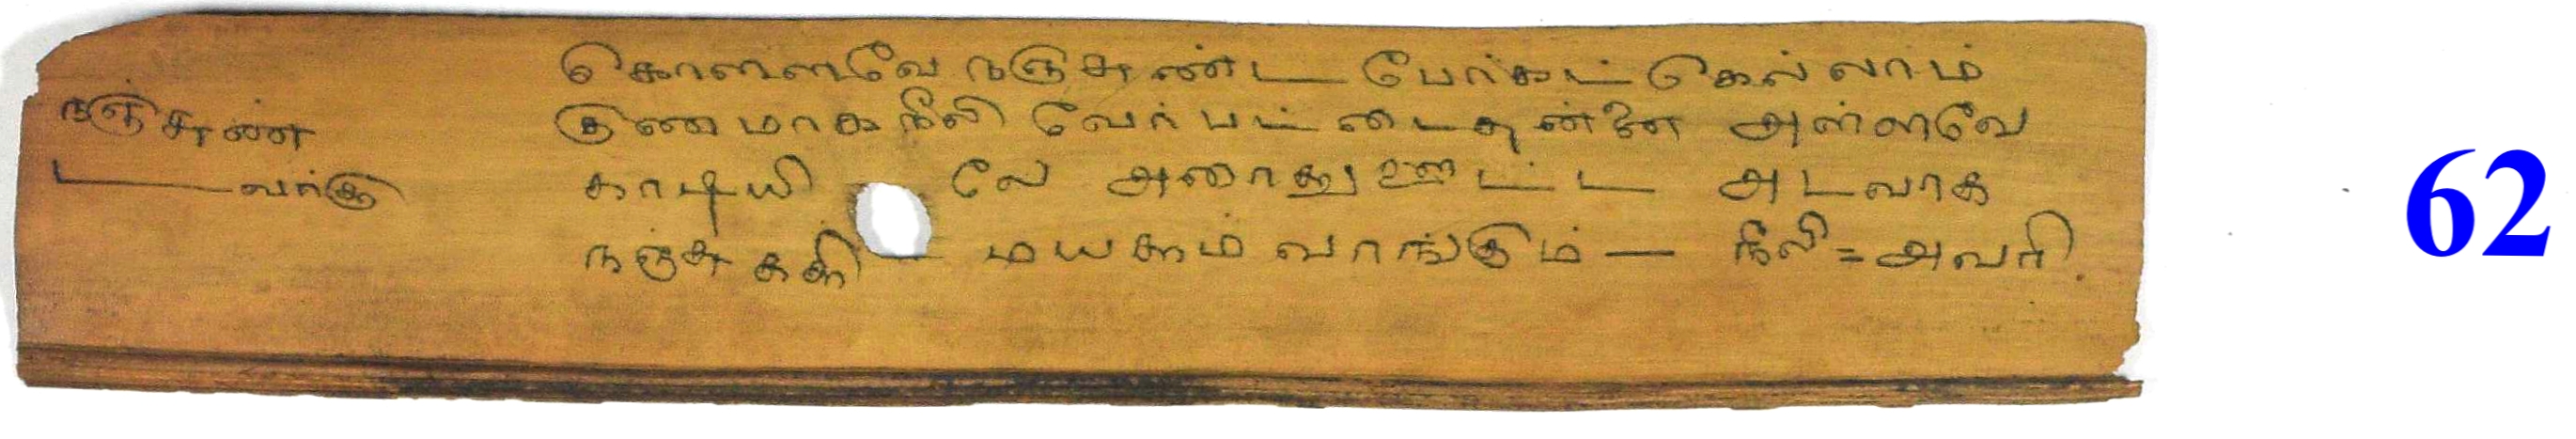 நஞ்சுண்
டவர்கு
கொளளவே நஞுசுண்ட பேர்கட்கெல்லாம்
குணமாக நீலி வேர்பட்டைதுன்னை அள்ளவே
காடியிலே அரைது ஊட்ட அடவாக
நஞ்சு கக்கி மயகம் வாங்கும் — நீலி = அவரி
62